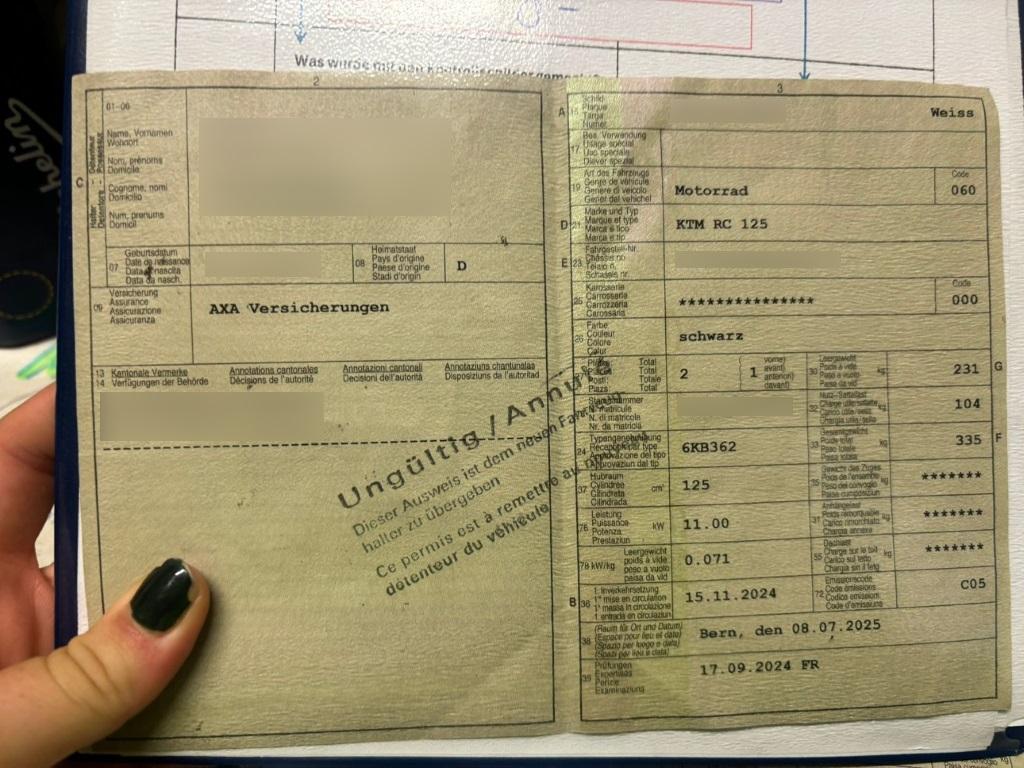 Was wurde mit den
2
01-06
Name, Vornamen
Wohnort
Nom, prénoms
Domicile
Cognome, nomi
Domicilio
Num, prenums
Domicil
C
Halter
Détenteur
07
Geburtsdatum
Date de naissance
Data di nascita
Data da nasch.
08
Heimatstaat
Pays d'origine
Paese d'origine
Stadi d'origin
D
09
Versicherung
Assurance
Assicurazione
Assicuranza
AXA Versicherungen
13 Kantonale Vermerke Annotations cantonales Annotazioni cantonali Annotaziuns chantunalas
14 Verfügungen der Behörde Décisions de l'autorité Decisioni dell'autorità Disposiziuns da l'autoritad
Ungültig / Annulé
Dieser Ausweis ist dem neuen Fahrzeug
halter zu übergeben
Ce permis est à remettre au
détenteur du véhicule
3
A
Schild
Plaque
Targa
Numer
Weiss
17
Bes. Verwendung
Usage spécial
Uso speciale
Diever spezial
19
Art des Fahrzeugs
Genre de véhicule
Genere di veicolo
Gener dal vehichel
Motorrad
Code
060
D 21
Marke und Typ
Marque et type
Marca e tipo
Marca e tip
KTM RC 125
E 23
Fahrgestell-Nr.
Châssis no
Telaio n.
Schassis nr.
25
Karosserie
Carrosserie
Carrozzeria
Carossaria
***************
Code
000
26
Farbe
Couleur
Colore
Calur
schwarz
Total
Total
Totale
Total
2
1
vorne)
avant)
anteriori)
davant)
30
Leergewicht
Poids à vide
Peso a vuoto
Paisa da vid
kg
231
G
Stammnummer
N. matricule
N. di matricola
Nr. da matricla
32
kg
104
24
Typengenehmigung
Réception par type
Approvazione del tipo
Approvaziun dal tip
6KB362
33
Gesamtgewicht
Poids total
Peso totale
Paisa totala
kg
335
F
37
Hubraum
Cylindrée
Cilindrata
Cilindrada
cm³
125
35
Gewicht des Zuges
Poids de l'ensemble
Peso del convoglio
Paisa cumposiziun
kg
*******
76
Leistung
Puissance
Potenza
Prestaziun
kW
11.00
31
Anhängelast
Poids remorquable
Carico rimorchiato
Chargia annexa
kg
*******
78 kW/kg
Leergewicht
poids à vide
peso a vuoto
paisa da vid
0.071
55
Dachlast
Charge sur le toit
Carico sul tetto
Chargia sin il tetg
kg
*******
B 36
1. Inverkehrsetzung
1re mise en circulation
1a messa in circolazione
1. entrada en circulaziun
15.11.2024
72
Emissionscode
Code émissions
Codice emissioni
Code d'emissiuns
C05
38
(Raum für Ort und Datum)
(Espace pour lieu et date)
(Spazio per luogo e data)
(Spazi per lieu e data)
Bern, den 08.07.2025
39
Prüfungen
Expertises
Perizie
Examinaziuns
17.09.2024 FR